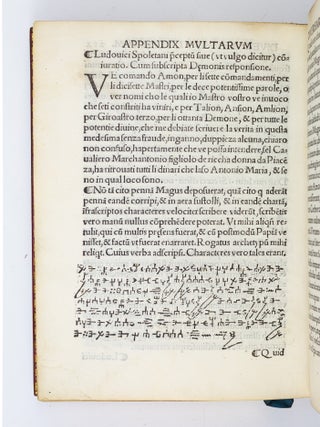 APPENDIX MVLTARVM
¶Ludouici Spotani ꝑceptũ siue (vt vulgo dicitur) cõ/
iuratio. Cum subscripta Dęmonis responsione.
VE comando Amon, per li sette cõmandamenti, per
li dicisette Mastri, per le dece potentissime parole, o
ver nomi cħe lo qual io Mastro vostro ve inuoco
che seti constricti ha vinir, e per Talion, Ansion, Amlion,
per Giroastro terzo, per li ottanta Demone, & per tutte le
potentie diuine, che me debiate scriuere la verita in questa
medesima senza fraude, inganno, duppiezza alcuna, ciuaro
non confuso, hapertamente che ve possa intendere, se l Ca-
ualiero Marchantonio figliolo de riccha donna da Piacẽ/
za, ha ritrouati tutti li dinari che laso Antonio Maria, & se/
no in qual loco sono.
¶Nõ tã cito penna Magus deposuerat, quã cito q aderãt
pennã eandẽ corripi, & in aera sustolli, & in eandẽ chartã,
ifrascriptos characteres velociter scribere viderũt, scribẽtis
vero manũ nullus cõprehẽdere poterat. Vt mihi aliqñ re/
tulit, qui cũ multis prsens fuerat, & cũ postmodũ Papiã ve
nisset, & factũ vt fuerat enarraret. Rogatus archety pũ mihi
reliqt. Cuius verba adscripsi. Characteres vero tales erant.
¶Q uid